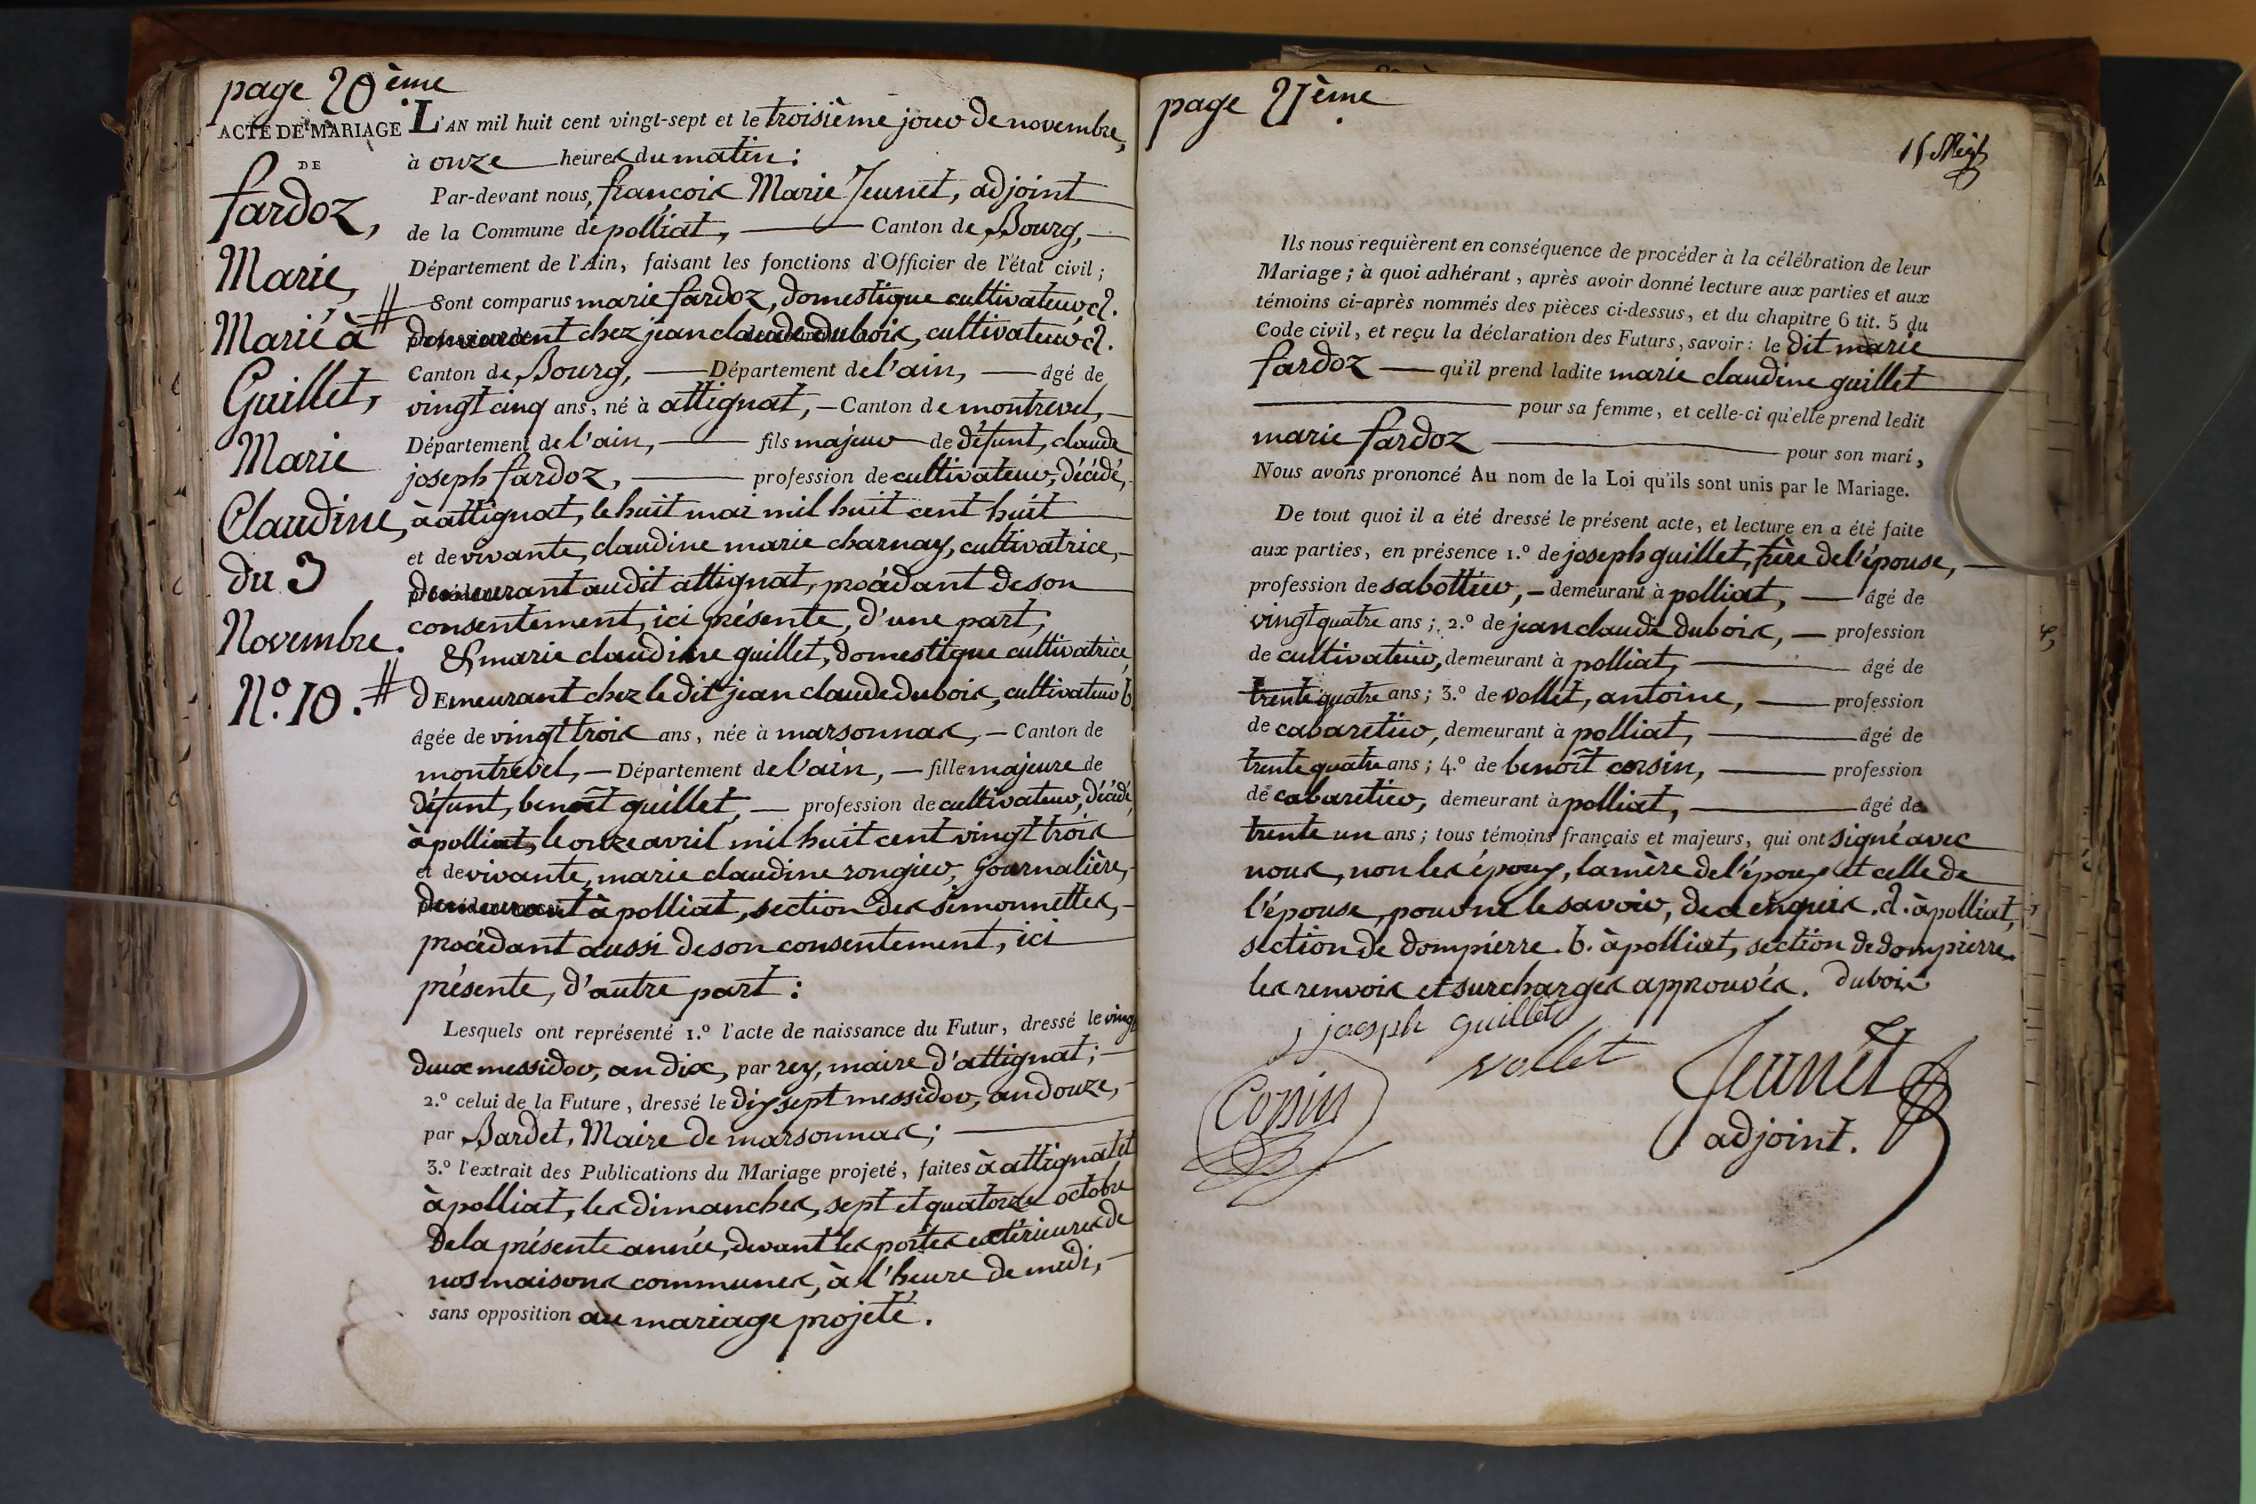 page 20ème
ACTE DE MARIAGE
DE
fardoz,
Marie,
Marié à
Guillet,
Marie
Claudine,
du 3
Novembre.
N.º 10.
L'AN mil huit cent vingt-sept et le troisième jour de novembre,
à onze heures du matin :
Par-devant nous, françois Marie Jeunet, adjoint
de la Commune de polliat, Canton de Bourg,
Département de l'Ain, faisant les fonctions d'Officier de l'état civil ;
Sont comparus marie fardoz, domestique cultivateur, a.
demeurant chez jean claude dubois, cultivateur a.
Canton de Bourg, Département de l'ain, âgé de
vingt cinq ans, né à attignat, Canton de montrevel,
Département de l'ain, fils majeur de défunt, claude
joseph fardoz, profession de cultivateur, décédé,
à attignat, le huit mai mil huit cent huit
et de vivante, claudine marie charnay, cultivatrice,
demeurant audit attignat, procédant de son
consentement, ici présente, d'une part,
& marie claudine guillet, domestique cultivatrice,
demeurant chez le dit jean claude dubois, cultivateur b
âgée de vingt trois ans, née à marsonnas, Canton de
montrevel, Département de l'ain, fille majeure de
défunt, benoît guillet, profession de cultivateur, décédé,
à polliat, le onze avril mil huit cent vingt trois
et de vivante, marie claudine rongier, journalière,
demeurant à polliat, section des simonnettes,
procédant aussi de son consentement, ici
présente, d'autre part :
Lesquels ont représenté 1.º l'acte de naissance du Futur, dressé le vingt
deux messidor, an dix, par rey, maire d'attignat ;
2.º celui de la Future, dressé le dix sept messidor, an douze,
par Bardet, Maire de marsonnas ;
3.º l'extrait des Publications du Mariage projeté, faites à attignat et
à polliat, les dimanches, sept et quatorze octobre
de la présente année, devant les portes extérieures de
nos maisons communes, à l'heure de midi,
sans opposition au mariage projeté.
page 21ème
Ils nous requièrent en conséquence de procéder à la célébration de leur
Mariage ; à quoi adhérant, après avoir donné lecture aux parties et aux
témoins ci-après nommés des pièces ci-dessus, et du chapitre 6 tit. 5 du
Code civil, et reçu la déclaration des Futurs, savoir : le dit marie
fardoz qu'il prend ladite marie claudine guillet
pour sa femme, et celle-ci qu'elle prend ledit
marie fardoz pour son mari,
Nous avons prononcé Au nom de la Loi qu'ils sont unis par le Mariage.
De tout quoi il a été dressé le présent acte, et lecture en a été faite
aux parties, en présence 1.º de joseph guillet, frère de l'épouse,
profession de sabottier, demeurant à polliat, âgé de
vingt quatre ans ; 2.º de jean claude dubois, profession
de cultivateur, demeurant à polliat, âgé de
trente quatre ans ; 3.º de vollet, antoine, profession
de cabaretier, demeurant à polliat, âgé de
trente quatre ans ; 4.º de benoît corsin, profession
de cabaretier, demeurant à polliat, âgé de
trente un ans ; tous témoins français et majeurs, qui ont signé avec
nous, non les époux, la mère de l'époux et celle de
l'épouse, pour ne le savoir, de ce enquis. a. à polliat,
section de dompierre. b. à polliat, section de dompierre.
les renvois et surcharges approuvés. Dubois
joseph guillet
vollet
Jeunet
Corsin
adjoint.